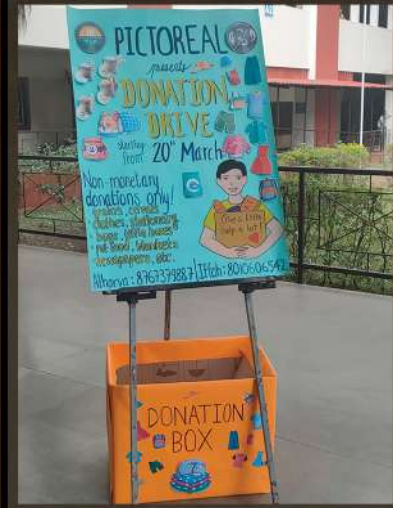 PICTOREAL
presents
DONATION
DRIVE
starting
from 20th March
Non-monetary
donations only!
grains, cereals,
clothes, stationary,
bags, tiffin boxes,
pet food, blankets
newspapers, etc.
Give a little
help a lot!
Atharva: 8767379887 | Iffah: 8010606542
DONATION
BOX